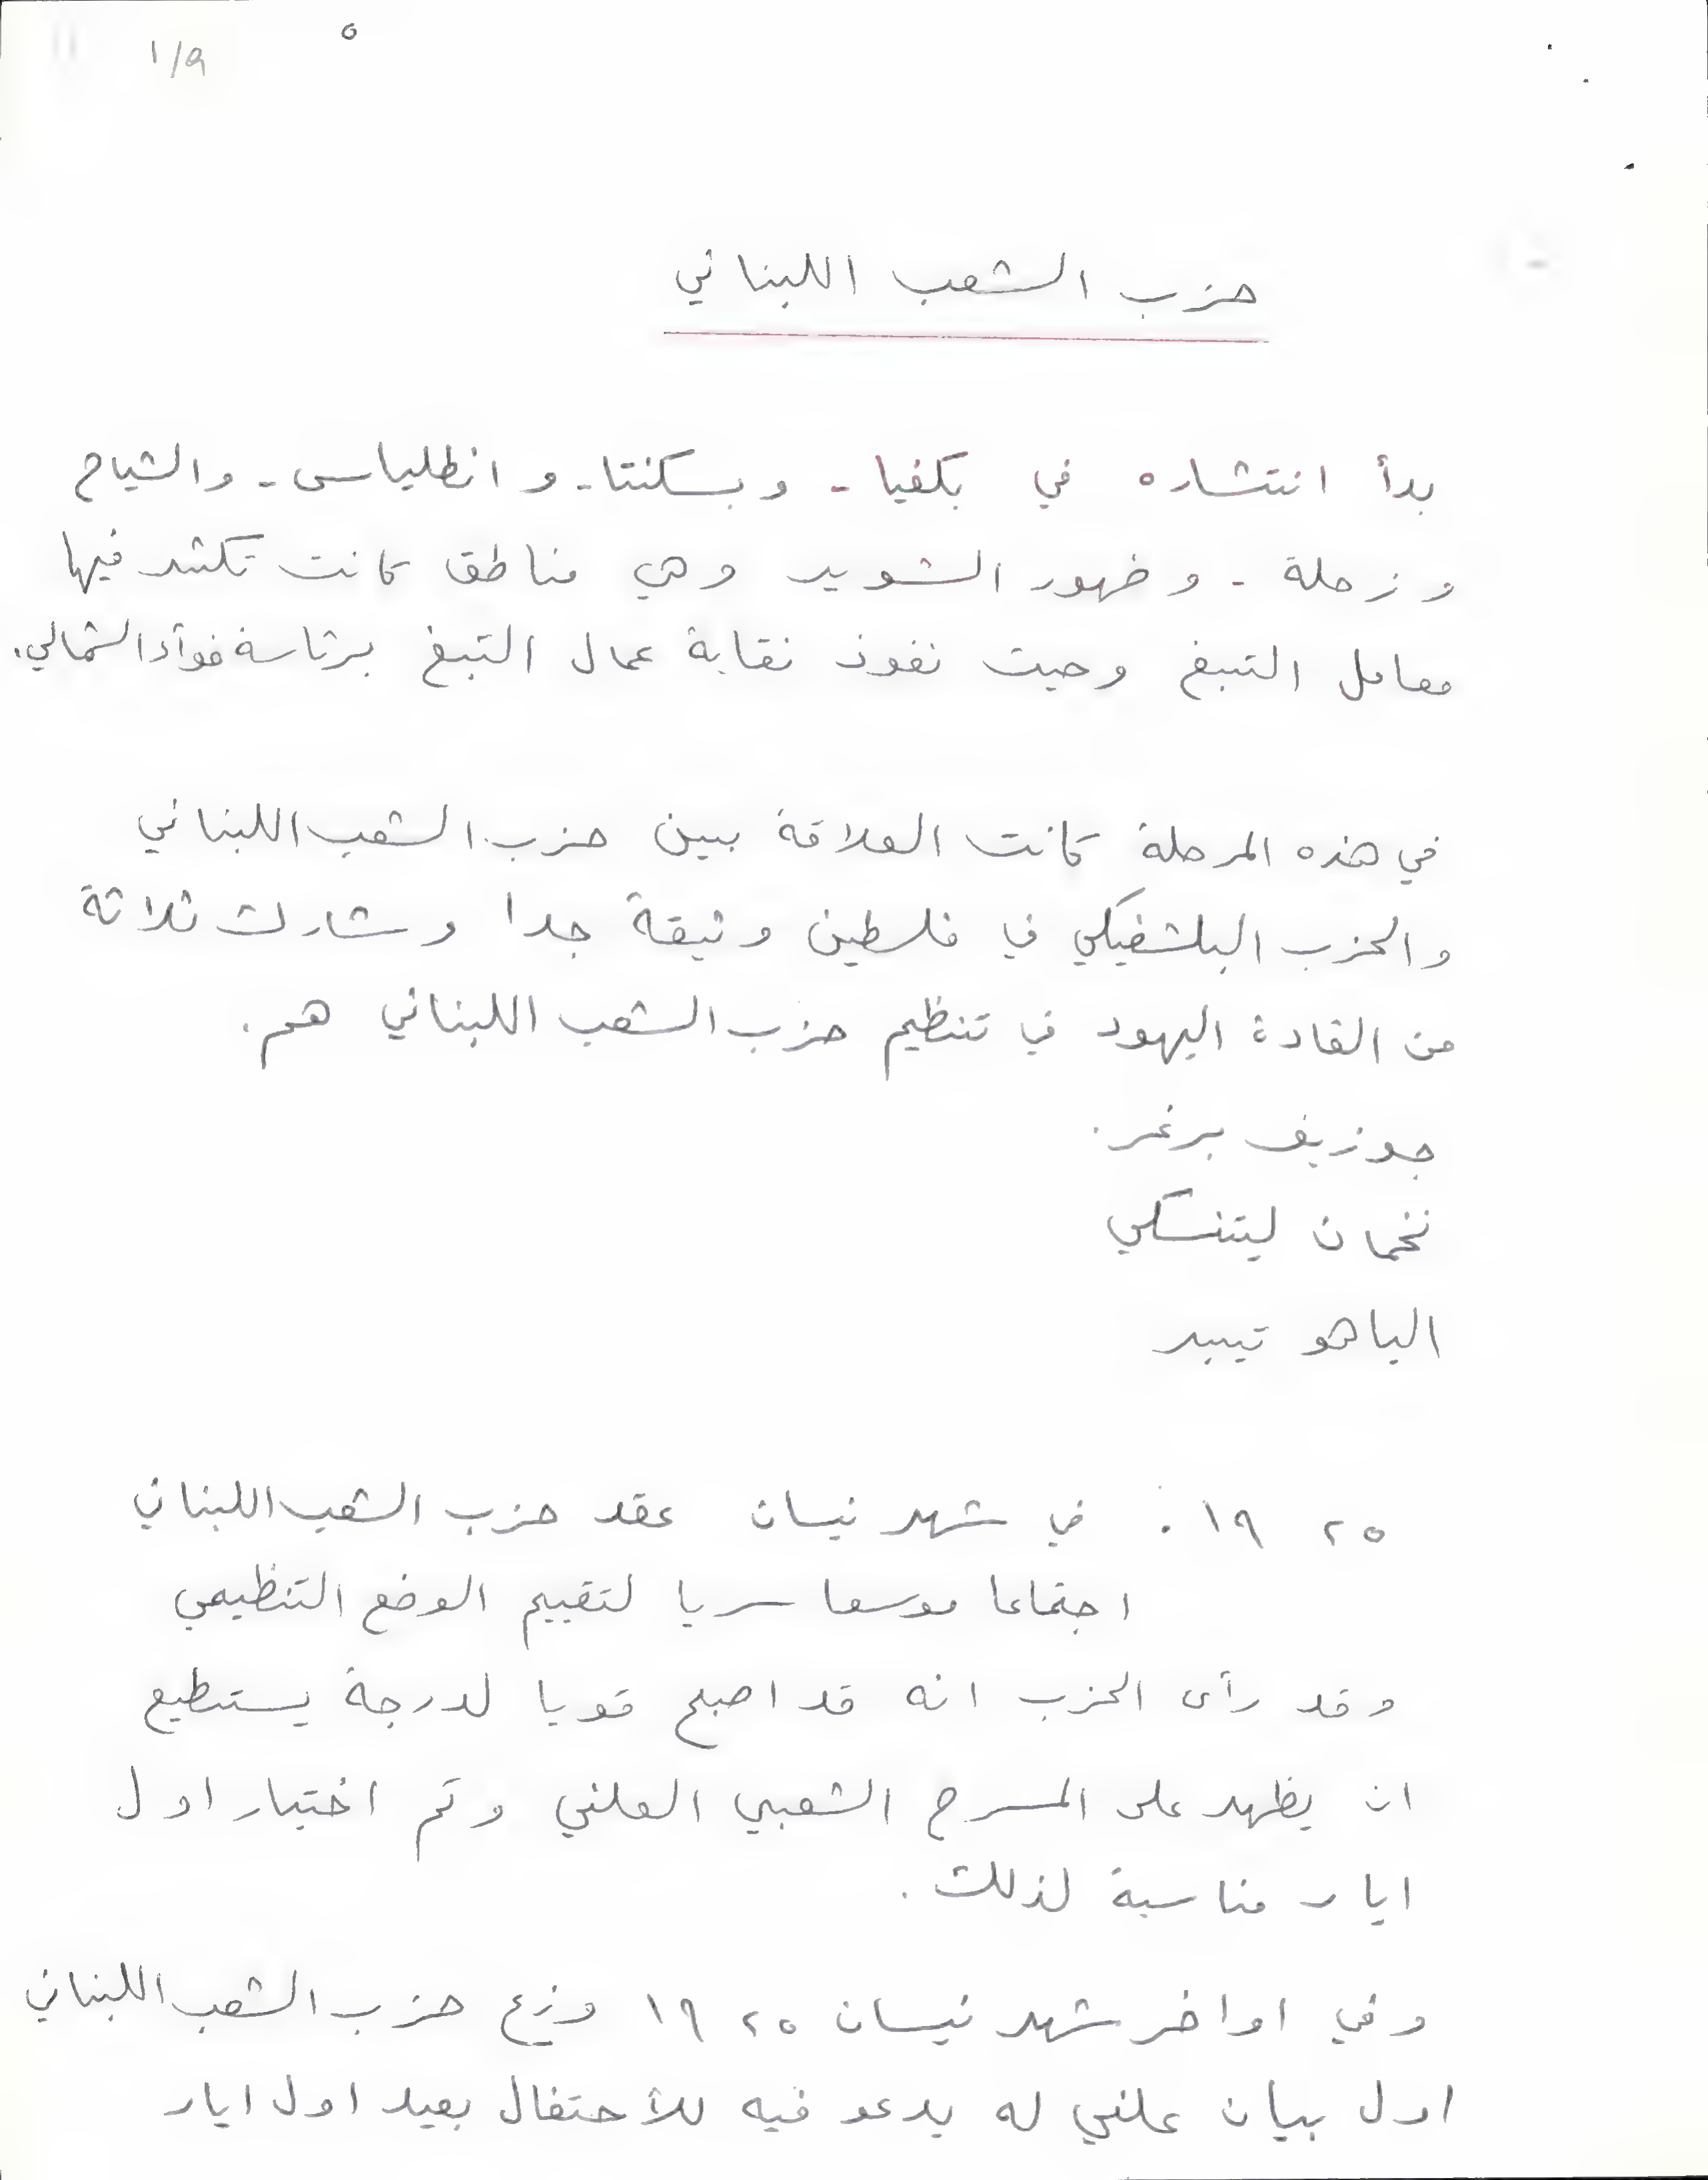 ١/٩
٥
حزب الشعب اللبناني
بدأ انتشاره في بكفيا - وبسكنتا - و انطلياس - والشياح
وزحلة - وضهور الشوير وهي مناطق كانت تكثر فيها
معامل التبغ وحيث نفوذ نقابة عمال التبغ برئاسة فوآد الشمالي.
في هذه المرحلة كانت العلاقة بين حزب الشعب اللبناني
والحزب البلشفيكي في فلسطين وثيقة جدا وشارك ثلاثة
من القادة اليهود في تنظيم حزب الشعب اللبناني هم.
جوزيف برغر.
نخمان ليتنسكي
الياهو تيبر
١٩٢٥. في شهر نيسان عقد حزب الشعب اللبناني
اجتماعا موسعا سريا لتقييم الوضع التنظيمي
وقد رأى الحزب انه قد اصبح قويا لدرجة يستطيع
ان يظهر على المسرح الشعبي العلني وتم اختيار اول
ايار مناسبة لذلك.
وفي اواخر شهر نيسان ١٩٢٥ وزع حزب الشعب اللبناني
اول بيان علني له يدعو فيه للأحتفال بعيد اول ايار